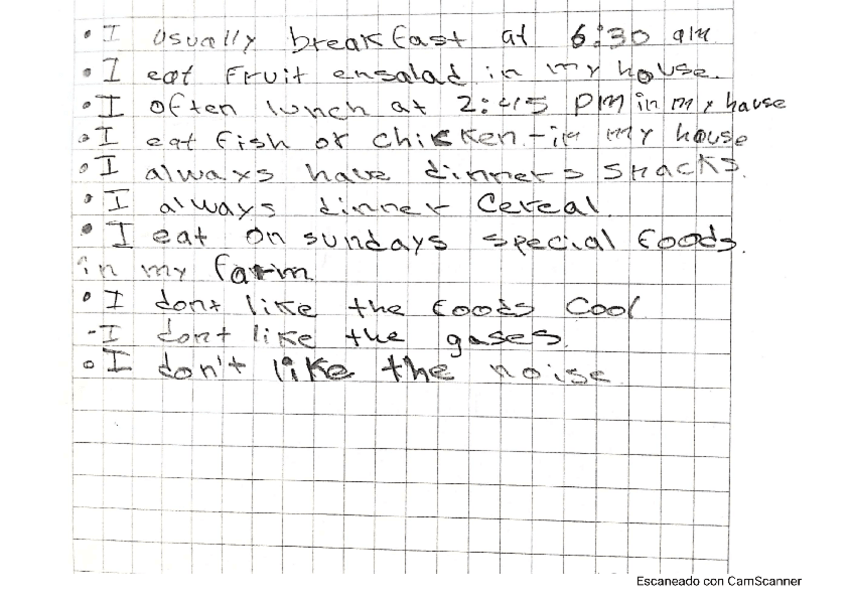 • I usually breakfast at 6:30 am
• I eat Fruit ensalad in my house.
• I often lunch at 2:45 PM in my hause
• I eat fish or chicken - in my house
• I always have dinners snacks.
• I always dinner Cereal.
• I eat on sundays special foods.
in my farm
• I dont like the foods Cool
- I dont like the gases.
• I don't like the noise
Escaneado con CamScanner